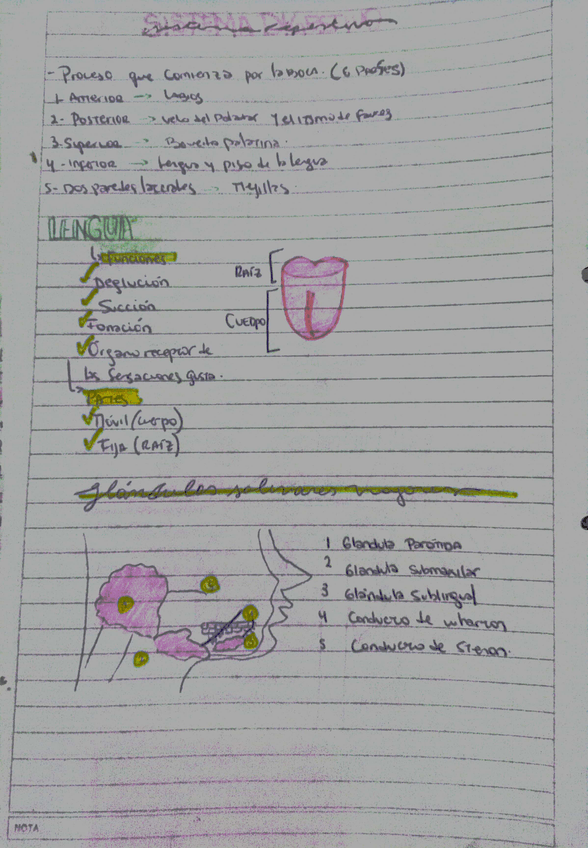 Sistema Digestivo
- Proceso que comienza por la boca. (6 paredes)
1. Anterior -> Labios
2- Posterior -> velo del Paladar y el istmo de fauces
3. Superior -> Boveda palatina.
4 - Inferior -> Lengua y piso de la lengua
5- Dos paredes laterales -> Mejillas.
LENGUA
Funciones
Deglución
Succión
Fonación
Organo receptor de
las sensaciones gusta.
Partes
Móvil (cuerpo)
Fija (RAÍZ)
RAÍZ
CUERPO
Glándulas salivares mayores
1 Glandula Parótida
2 Glandula Submaxilar
3 Glándula Sublingual
4 Conducto de wharton
5 Conducto de Stenon.
NOTA